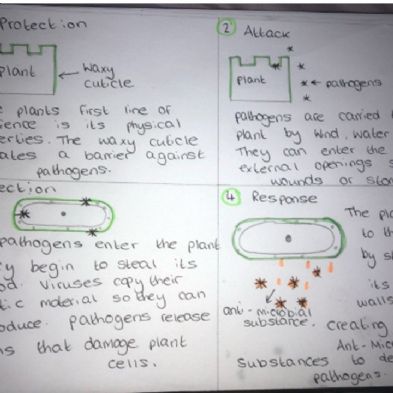 Protection
Plant
Waxy
cuticle
plants first line of
is its physical
The waxy cuticle
a barrier against
pathogens.
② Attack
Plant
pathogens
pathogens are carried
plant by wind, water
They can enter the
external openings
wounds or
pathogens enter the plant
begin to steal its
Viruses copy their
material so they can
pathogens release
that damage plant
cells.
④ Response
The
to th
by s
its
walls
anti-microbial
substance.
creating
Anti-Mic
substances to de
pathogens.